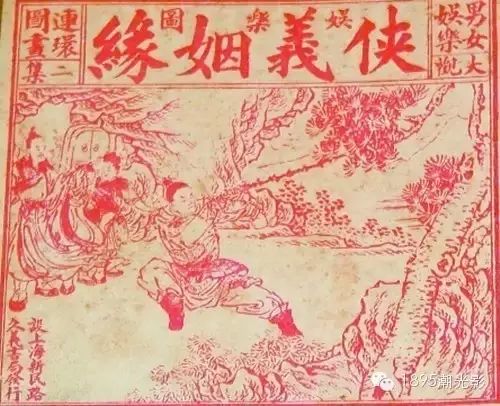 男女大
娛樂觀
娛樂圖
俠義姻緣
連環二
圖畫集
設上海新民路
義書局發行
1895潮光影